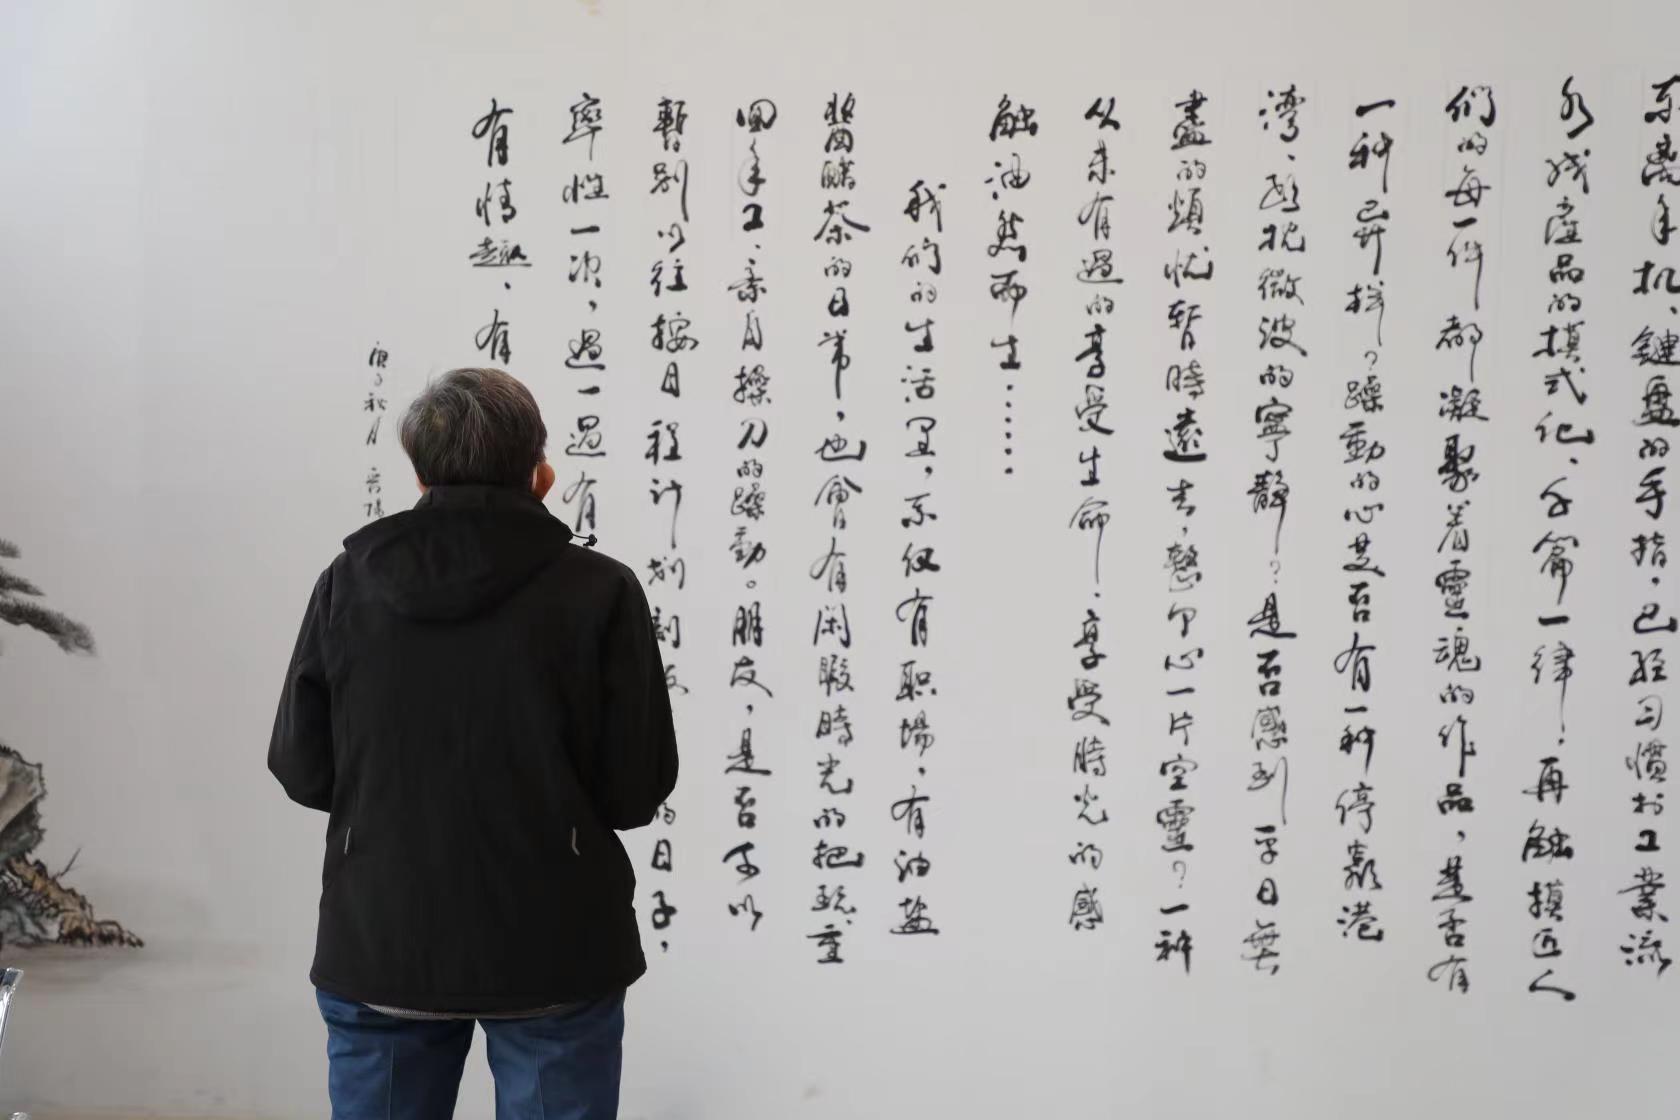 不离手机、鍵盘的手指，已经习慣於工業流
水线産品的模式化、千篇一律！再触摸匠人
們的每一件都凝聚着靈魂的作品，是否有
一种异样？躁動的心是否有一种停靠港
湾、憩枕微波的寧静？是否感到平日無
盡的煩忧暫時遠去，整个心一片空靈？一种
从未有過的享受生命、享受時光的感
触油然而生……
我們的生活里，不仅有职場，有油盐
醬醋茶的日常，也會有闲暇時光的把玩。重
回手工、亲自操刀的躁動。朋友，是否可以
暫别以往按日程计划刻板的日子，
率性一次，過一過有
有情趣、有
庚子秋月 晋陽